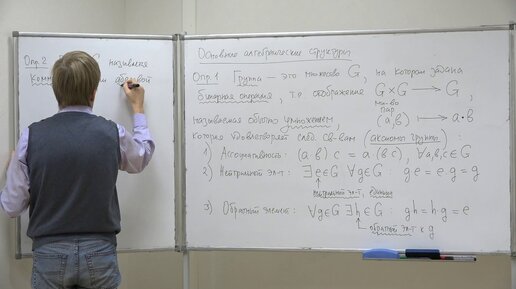 Опр. 2 называется
абелевой
Основные алгебраические структуры
Опр. 1 Группа — это множество G, на котором задана
бинарная операция, т.е. отображение G × G → G,
мн-во пар (a, b) ↦ a • b
называемая обычно умножением,
которая удовлетворяет след. св-вам (аксиомы группы):
1) Ассоциативность: (a b) c = a (b c), ∀ a, b, c ∈ G
2) Нейтральный эл-т: ∃ e ∈ G ∀ g ∈ G : g e = e g = g
нейтральный эл-т, единица
3) Обратный элемент: ∀ g ∈ G ∃ h ∈ G : g h = h g = e
обратный эл-т к g